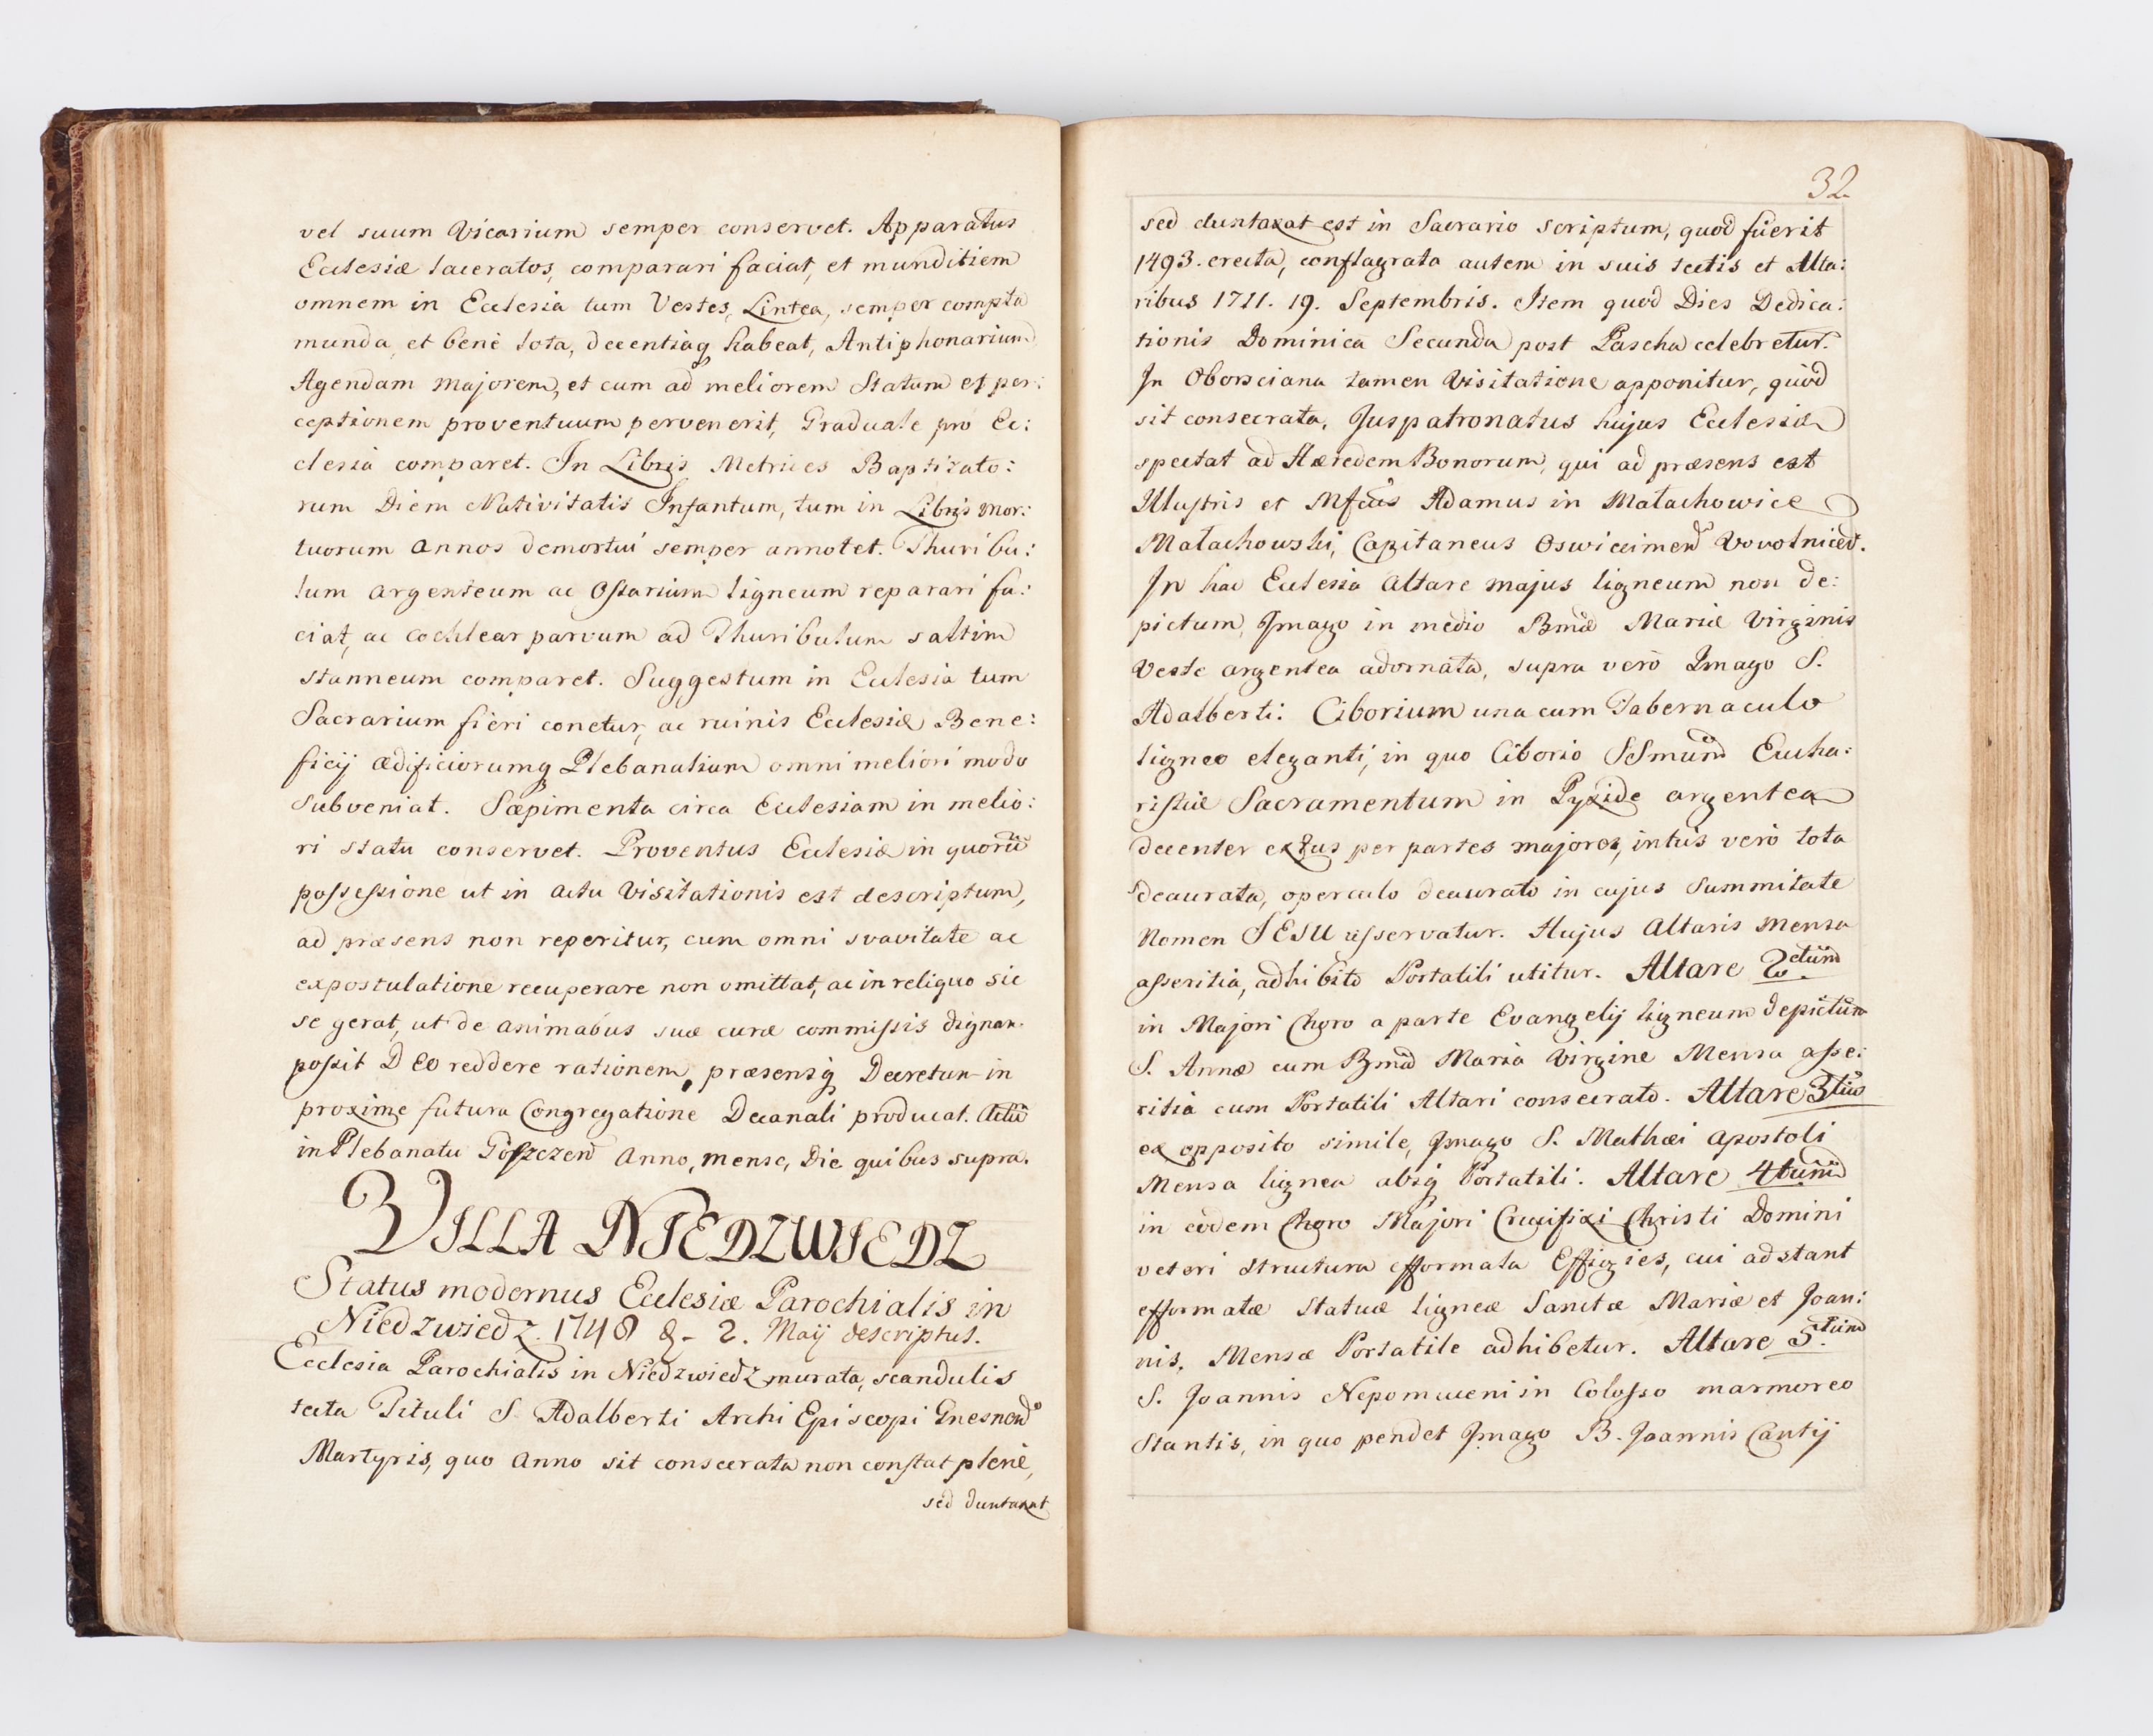 vel suum Vicarium semper conservet. Apparatus
Ecclesiæ laceratos, comparari faciat, et munditiem
omnem in Ecclesia tum Vestes, Lintea, semper compta
munda, et benè lota, decentiaq habeat, Antiphonarium
Agendam majorem, et cum ad meliorem Statum et per:
ceptionem proventuum pervenerit, Graduale pro Ec:
clesia comparet. In Libris Metrices Baptizato:
rum Diem Nativitatis Infantum, tum in Libris Mor:
tuorum annos demortui semper annotet. Thuribu:
lum argenteum ac Ostarium ligneum reparari fa:
ciat, ac cochlear parvum ad Thuribulum saltim
stanneum comparet. Suggestum in Ecclesia tum
Sacrarium fieri conetur, ac ruinis Ecclesiæ Bene:
ficij ædificiorumq Plebanalium omni meliori modo
subveniat. Sæpimenta circa Ecclesiam in melio:
ri statu conservet. Proventus Ecclesiæ in quorũ
possessione ut in actu Visitationis est descriptum,
ad præsens non reperitur, cum omni svavitate ac
expostulatione recuperare non omittat, ac in reliquo sic
se gerat, ut de animabus suæ curæ commissis dignam
possit DEO reddere rationem, præsensq Decretum in
proxime futura Congregatione Decanali producat. Actũ
in Plebanatu Goszczen Anno, mense, Die quibus supra.
VILLA NIEDZWIEDZ
Status modernus Ecclesiæ Parochialis in
Niedzwiedz. 1748 d. 2. Maij descriptus.
Ecclesia Parochialis in Niedzwiedz murata, scandulis
tecta Tituli S. Adalberti Archi Episcopi Gnesnen
Martyris, quo Anno sit consecrata non constat plenè,
sed duntaxat
32
sed duntaxat est in Sacrario scriptum, quod fuerit
1493. erecta, conflagrata autem in suis tectis et Alta:
ribus 1711. 19. Septembris. Item quod Dies Dedica:
tionis Dominica Secunda post Pascha celebretur.
In Oborsciana tamen Visitatione apponitur, quod
sit consecrata, Juspatronatus hujus Ecclesiæ
spectat ad Hæredem Bonorum, qui ad præsens est
Illustris et Mfcus Adamus in Małachowice
Małachowski, Capitaneus Oswiecimen Wolnicen.
In hac Ecclesia Altare majus ligneum non de:
pictum, Imago in medio Bmæ Mariæ Virginis
Veste argentea adornata, supra verò Imago S.
Adalberti. Ciborium una cum Tabernaculo
ligneo eleganti, in quo Ciborio SSmum Eucha:
ristiæ Sacramentum in Pyxide argentea
decenter extus per partes majores, intus verò tota
deaurata, operculo deaurato in cujus summitate
Nomen JESU asservatur. Hujus Altaris Mensa
asseritia, adhibito Portatili utitur. Altare 2dum
in Majori Choro a parte Evangelij ligneum depictum
S. Annæ cum Bmã Maria Virgine Mensa asse:
ritia cum Portatili Altari consecrato. Altare 3tium
ex opposito simile, Imago S. Mathæi Apostoli
Mensa lignea absq Portatili. Altare 4tum
in eodem Choro Majori Crucifixi Christi Domini
veteri structura efformata Effigies, cui adstant
efformatæ Statuæ ligneæ Sanctæ Mariæ et Joan:
nis. Mensæ Portatile adhibetur. Altare 5tum
S. Joannis Nepomuceni in Colosso marmoreo
stantis, in quo pendet Imago B. Joannis Cantij